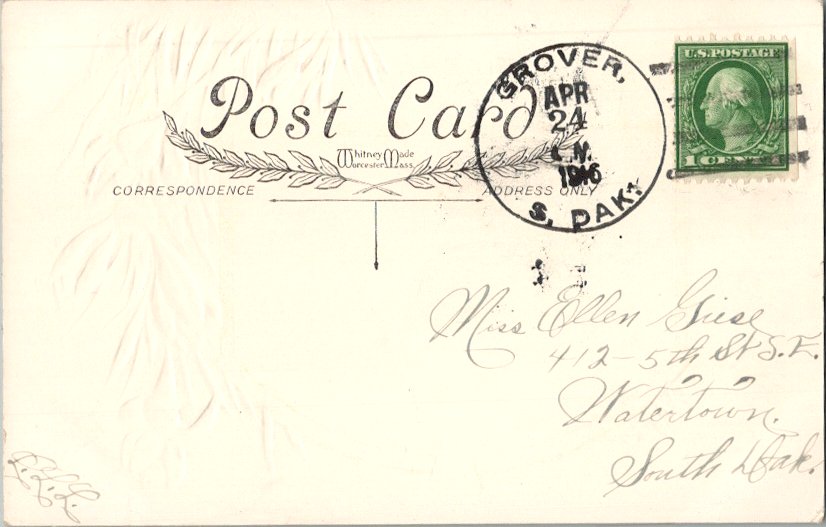 Post Card
Whitney Made
Worcester Mass.
CORRESPONDENCE
ADDRESS ONLY
GROVER,
APR
24
1916
S. DAK.
U.S. POSTAGE
1 CENT
Miss Ellen Giese
412 - 5th St S.E.
Watertown.
South Dak.
L.L.L.